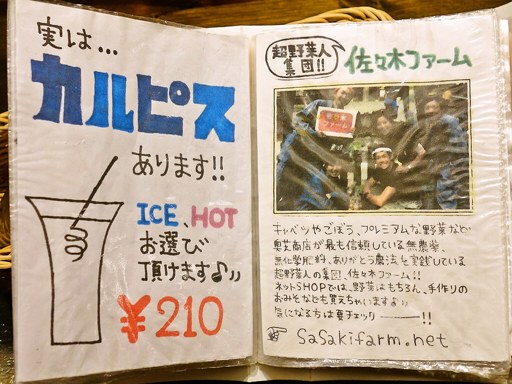 実は...
カルピス
あります!!
ICE、HOT
お選び
頂けます♪〃
¥210
超野菜人
集団!!
佐々木ファーム
ファーム
キャベツやごぼう、プレミアムな野菜など
奥芝商店が最も信頼している無農薬、
無化学肥料、ありがとう農法を実践している
超野菜人の集団、佐々木ファーム!!
ネットSHOPでは、野菜はもちろん、手作りの
おみそなども買えちゃいますよ♪〃
気になる方は要チェック――!!
☞ sasakifarm.net